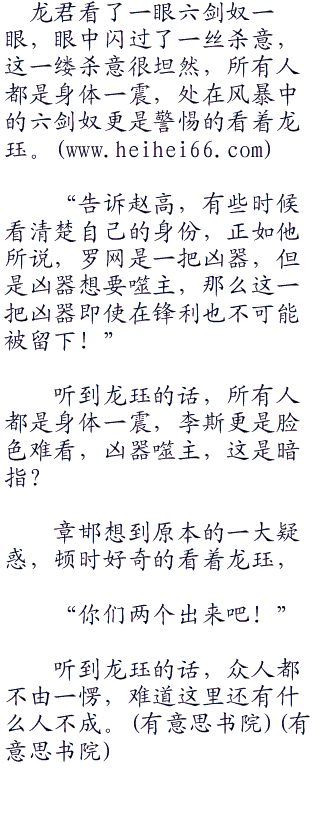 龙君看了一眼六剑奴一
眼，眼中闪过了一丝杀意，
这一缕杀意很坦然，所有人
都是身体一震，处在风暴中
的六剑奴更是警惕的看着龙
珏。(www.heihei66.com)
“告诉赵高，有些时候
看清楚自己的身份，正如他
所说，罗网是一把凶器，但
是凶器想要噬主，那么这一
把凶器即使在锋利也不可能
被留下！”
听到龙珏的话，所有人
都是身体一震，李斯更是脸
色难看，凶器噬主，这是暗
指？
章邯想到原本的一大疑
惑，顿时好奇的看着龙珏，
“你们两个出来吧！”
听到龙珏的话，众人都
不由一愣，难道这里还有什
么人不成。(有意思书院)(有
意思书院)